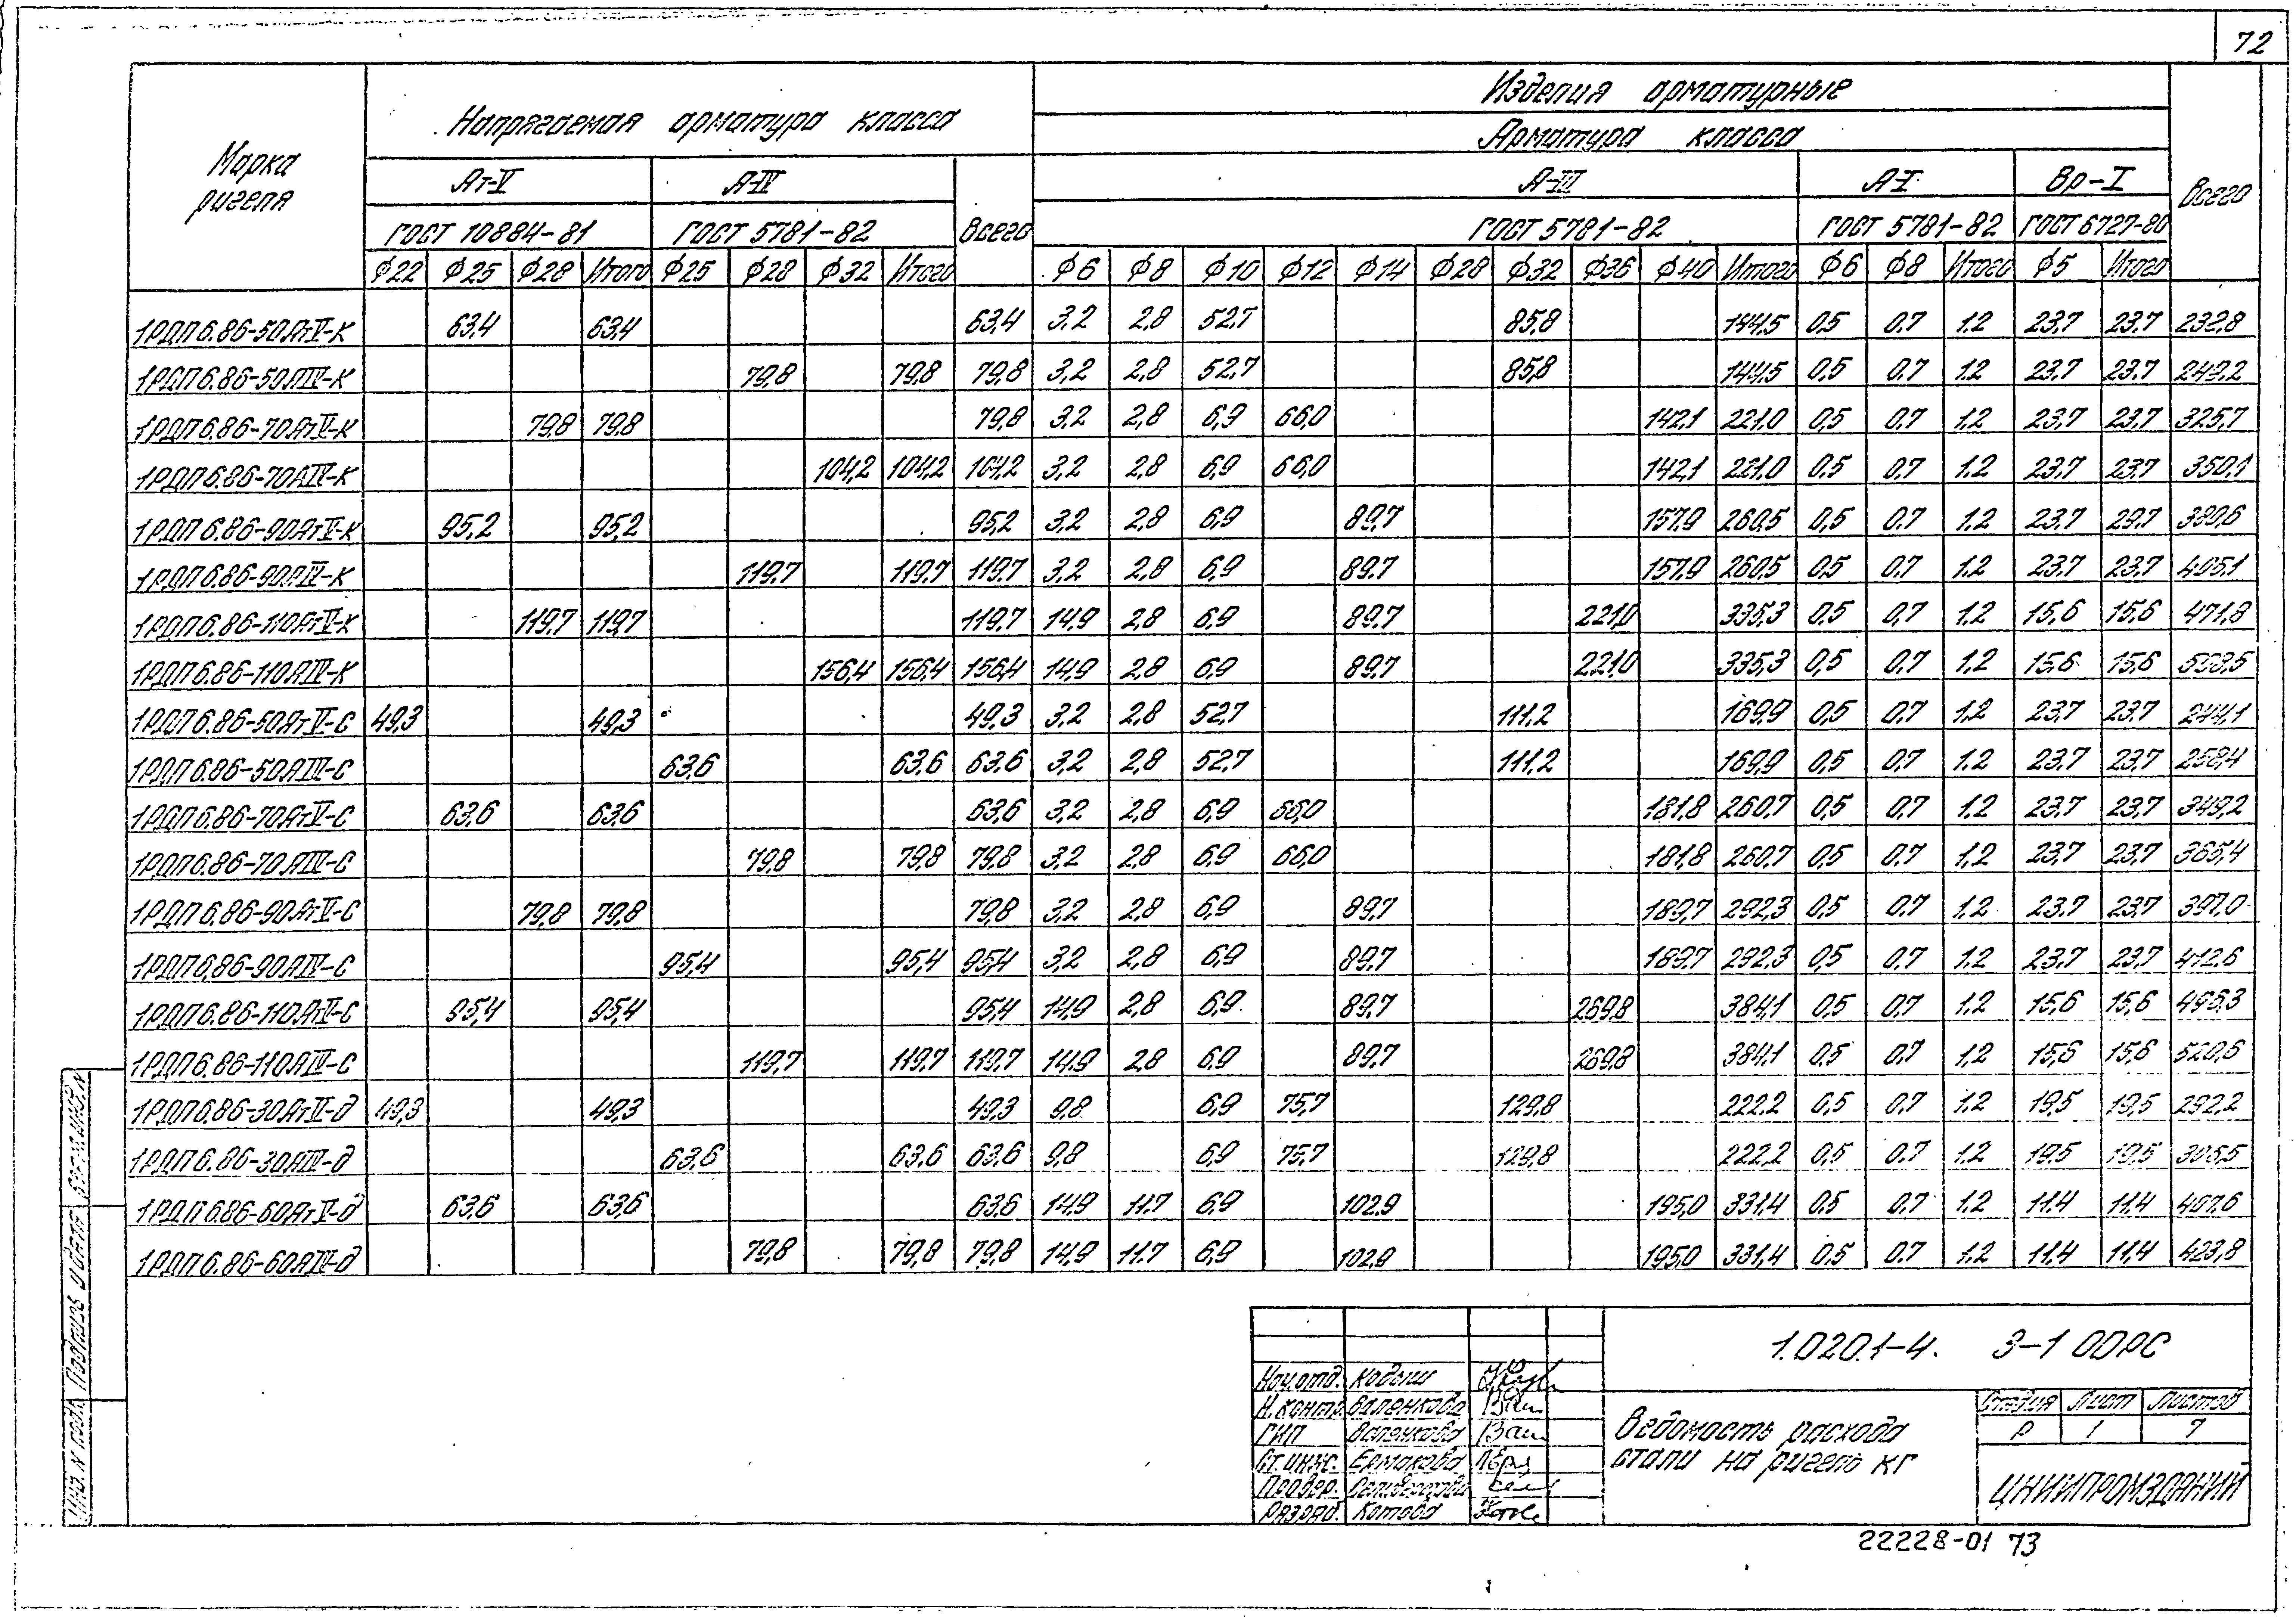 72
Марка ригеля
Напрягаемая арматура класса
Изделия арматурные
Арматура класса
Всего
Ат-V
А-IV
Всего
А-III
А-I
Вр-I
ГОСТ 10884-81
ГОСТ 5781-82
ГОСТ 5781-82
ГОСТ 5781-82
ГОСТ 6727-80
ф22 ф25 ф28 Итого ф25 ф28 ф32 Итого ф6 ф8 ф10 ф12 ф14 ф28 ф32 ф36 ф40 Итого ф6 ф8 Итого ф5 Итого
1РДП6.86-50АтV-К 63,4 63,4 63,4 3,2 2,8 52,7 85,8 144,5 0,5 0,7 1,2 23,7 23,7 232,8
1РДП6.86-50АIV-К 79,8 79,8 79,8 3,2 2,8 52,7 85,8 144,5 0,5 0,7 1,2 23,7 23,7 249,2
1РДП6.86-70АтV-К 79,8 79,8 79,8 3,2 2,8 6,9 66,0 142,1 221,0 0,5 0,7 1,2 23,7 23,7 325,7
1РДП6.86-70АIV-К 104,2 104,2 104,2 3,2 2,8 6,9 66,0 142,1 221,0 0,5 0,7 1,2 23,7 23,7 350,1
1РДП6.86-90АтV-К 95,2 95,2 95,2 3,2 2,8 6,9 89,7 157,9 260,5 0,5 0,7 1,2 23,7 29,7 380,6
1РДП6.86-90АIV-К 119,7 119,7 119,7 3,2 2,8 6,9 89,7 157,9 260,5 0,5 0,7 1,2 23,7 23,7 405,1
1РДП6.86-110АтV-К 119,7 119,7 119,7 14,9 2,8 6,9 89,7 221,0 335,3 0,5 0,7 1,2 15,6 15,6 471,8
1РДП6.86-110АIV-К 156,4 156,4 156,4 14,9 2,8 6,9 89,7 221,0 335,3 0,5 0,7 1,2 15,6 15,6 508,5
1РДП6.86-50АтV-С 49,3 49,3 49,3 3,2 2,8 52,7 111,2 169,9 0,5 0,7 1,2 23,7 23,7 244,1
1РДП6.86-50АIV-С 63,6 63,6 63,6 3,2 2,8 52,7 111,2 169,9 0,5 0,7 1,2 23,7 23,7 258,4
1РДП6.86-70АтV-С 63,6 63,6 63,6 3,2 2,8 6,9 66,0 181,8 260,7 0,5 0,7 1,2 23,7 23,7 349,2
1РДП6.86-70АIV-С 79,8 79,8 79,8 3,2 2,8 6,9 66,0 181,8 260,7 0,5 0,7 1,2 23,7 23,7 365,4
1РДП6.86-90АтV-С 79,8 79,8 79,8 3,2 2,8 6,9 89,7 189,7 292,3 0,5 0,7 1,2 23,7 23,7 397,0
1РДП6.86-90АIV-С 95,4 95,4 95,4 3,2 2,8 6,9 89,7 189,7 292,3 0,5 0,7 1,2 23,7 23,7 412,6
1РДП6.86-110АтV-С 95,4 95,4 95,4 14,9 2,8 6,9 89,7 269,8 384,1 0,5 0,7 1,2 15,6 15,6 496,3
1РДП6.86-110АIV-С 119,7 119,7 119,7 14,9 2,8 6,9 89,7 269,8 384,1 0,5 0,7 1,2 15,6 15,6 520,6
1РДП6.86-30АтV-д 49,3 49,3 49,3 9,8 6,9 75,7 129,8 222,2 0,5 0,7 1,2 19,5 19,5 292,2
1РДП6.86-30АIV-д 63,6 63,6 63,6 9,8 6,9 75,7 129,8 222,2 0,5 0,7 1,2 19,5 19,5 306,5
1РДП6.86-60АтV-д 63,6 63,6 63,6 14,9 11,7 6,9 102,9 195,0 331,4 0,5 0,7 1,2 11,4 11,4 407,6
1РДП6.86-60АIV-д 79,8 79,8 79,8 14,9 11,7 6,9 102,9 195,0 331,4 0,5 0,7 1,2 11,4 11,4 423,8
Инв. N подл. Подпись и дата Взам.инв.N
1.020.1-4. 3-1 00РС
Нач.отд. Кодыш
Н.контр. Валенкова
ГИП Валенкова
Ст.инж. Ермакова
Провер.
Разраб. Котова
Ведомость расхода
стали на ригель кг
Стадия Лист Листов
Р 1 7
ЦНИИПРОМЗДАНИЙ
22228-01 73